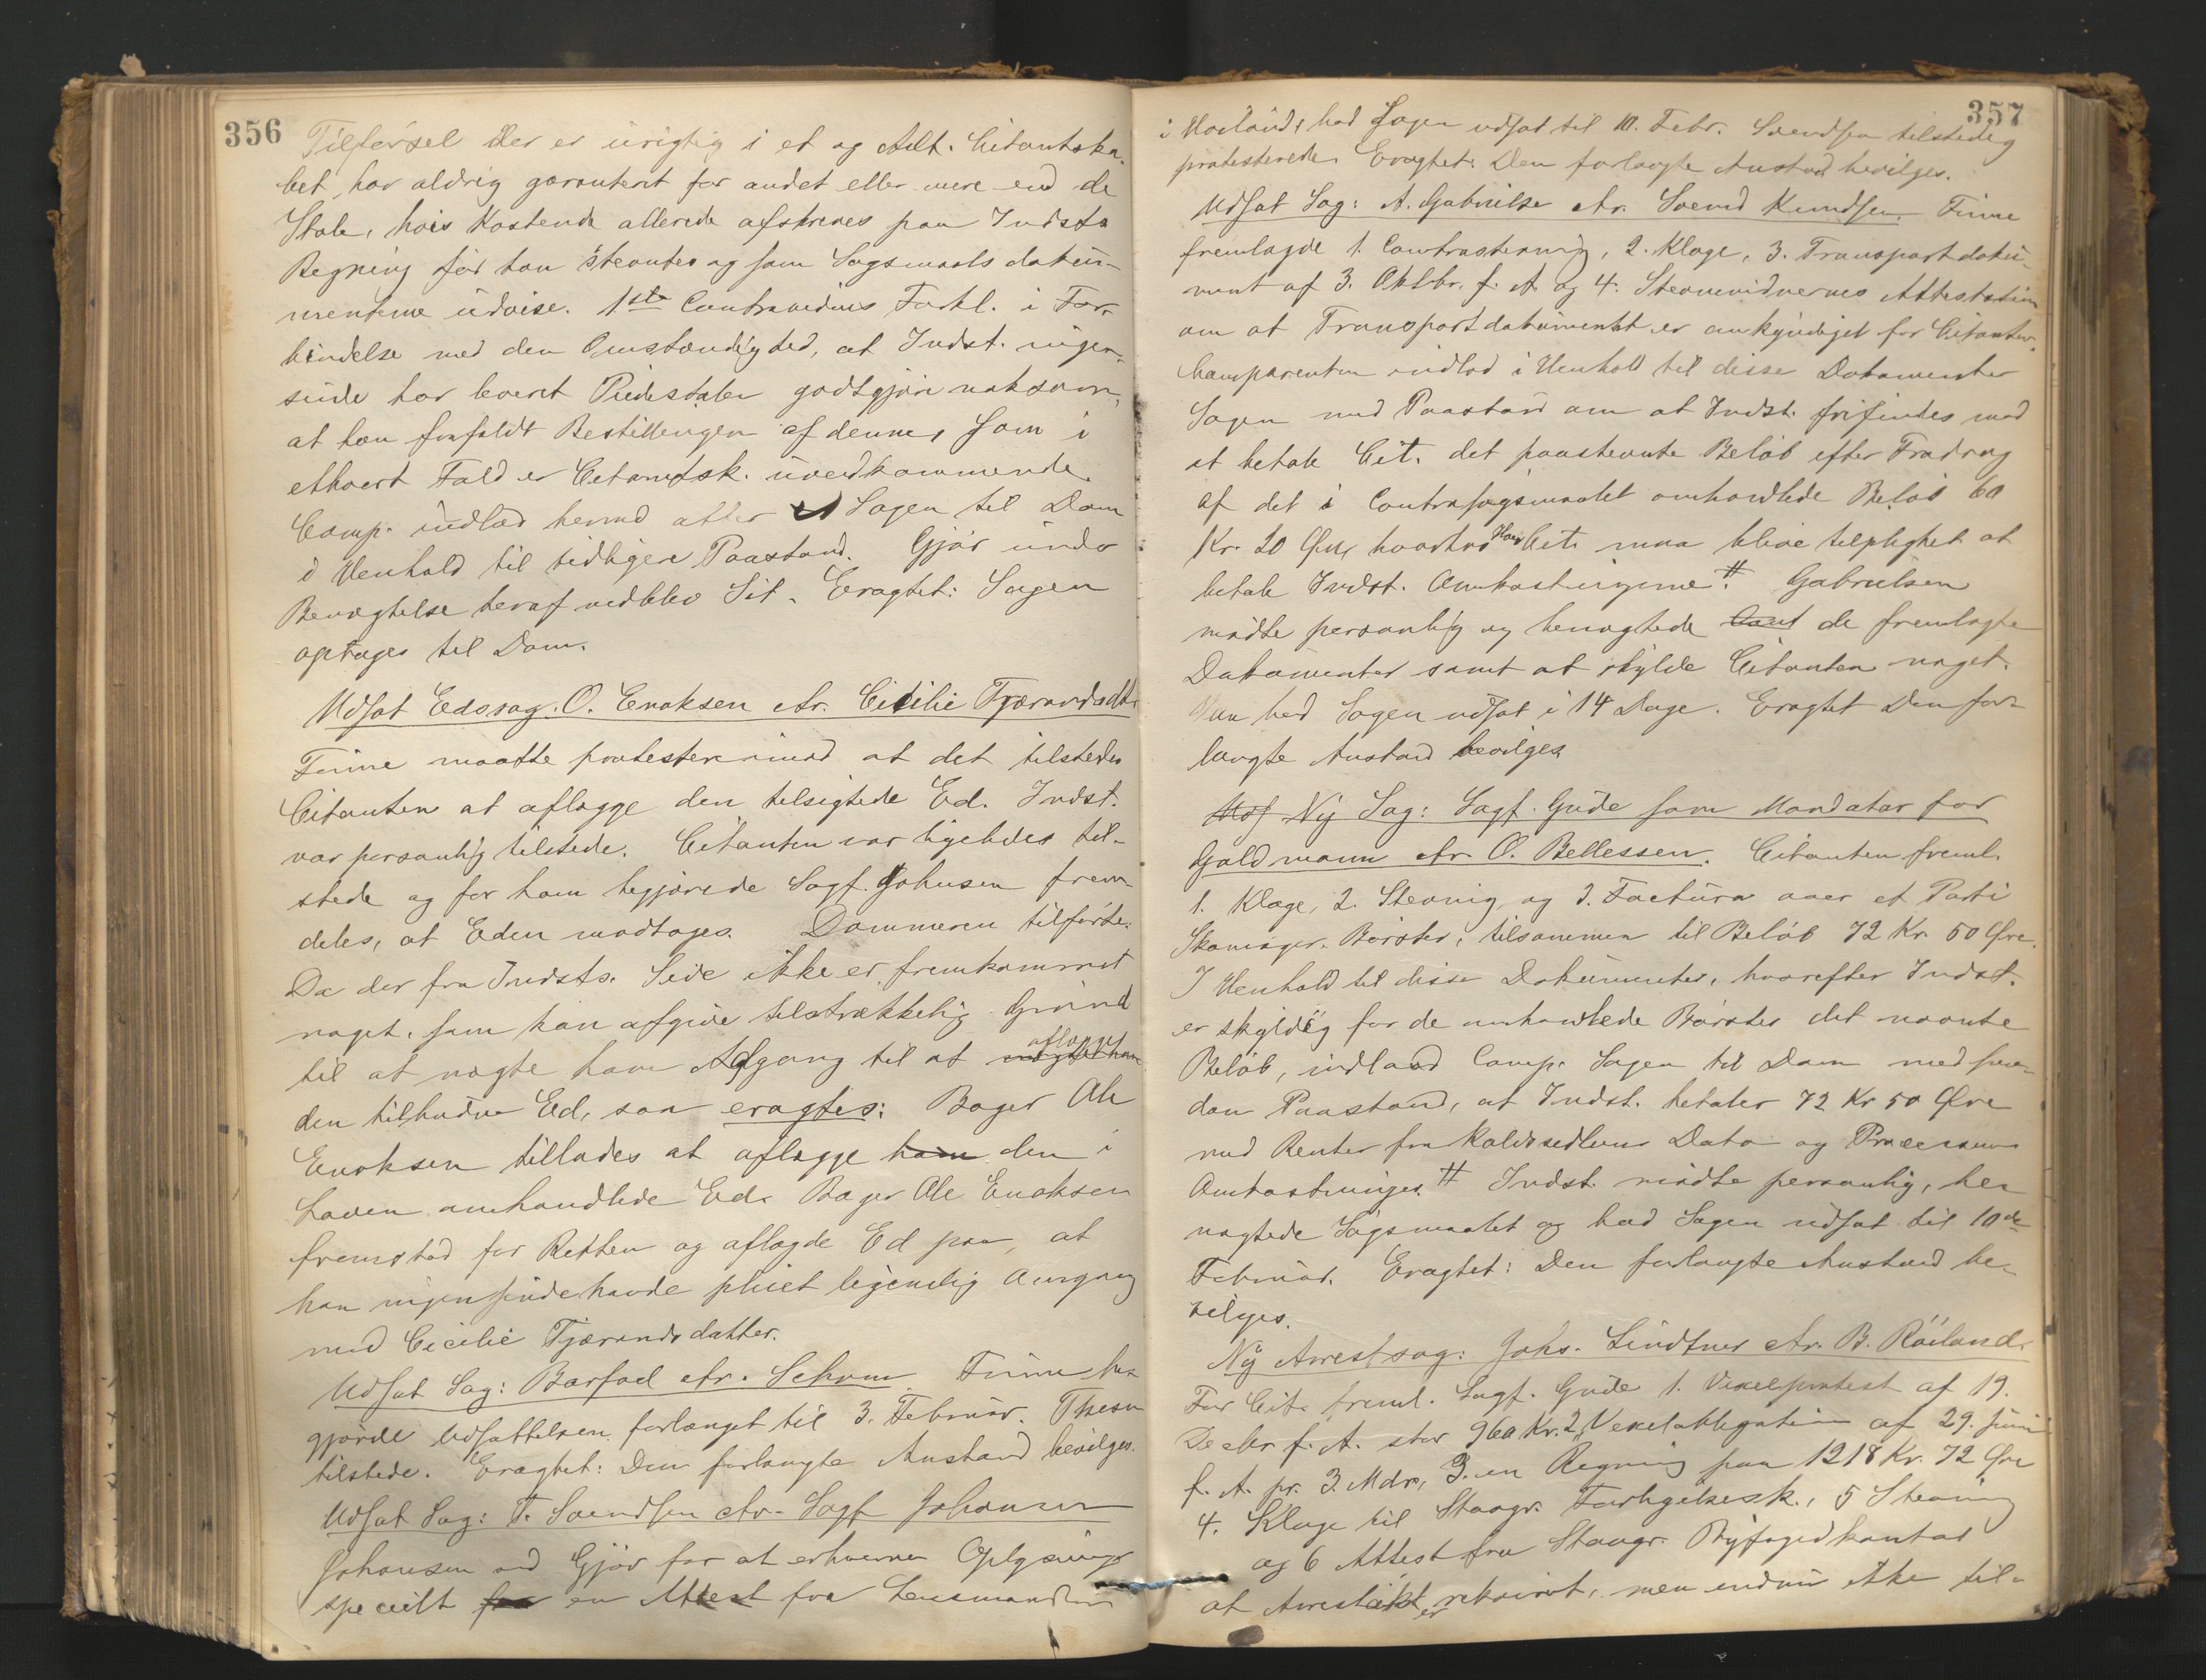 356
Tilførsel der er urigtig i et og Alt. Citantska-
bet har aldrig garanteret for andet eller mere end de
Stole, hvis Kostende allerede afskreves paa Indsts
Regning før han stevntes og som Sagsmaals doku-
menterne udvise. 1ste Contravidnes Forkl. i For-
bindelse med den Omstændighed, at Indst. ingen-
sinde har leveret Piedestalen godtgjør noksom,
at han frafaldt Bestillingen af denne, som i
ethvert Fald er Citantsk. uvedkommende.
Comp. indlod hermed atter Sagen til Dom
i Henhold til tidligere Paastand. Gjør under
Benægtelse heraf vedblev Sit. Eragtet: Sagen
optages til Dom.
Udsat Edssag: O. Enoksen ctr. Cicilie Tjærandsdtr.
Finne maatte protestere imod at det tilstedes
Citanten at aflægge den tilsigtede Ed. Indst.
var personlig tilstede. Citanten var ligeledes til-
stede og for ham begjærede Sagf. Johnsen frem-
deles, at Eden modtoges. Dommeren tilførte:
Da der fra Indsts. Side ikke er fremkommet
noget, som kan afgive tilstrækkelig Grund
til at nægte ham Adgang til at aflægge
den tilbudne Ed, saa eragtes: Bager Ole
Enoksen tillades at aflægge ham den i
Loven omhandlede Ed. Bager Ole Enoksen
fremstod for Retten og aflagde Ed paa, at
han ingensinde havde pleiet legemlig Omgang
med Cicilie Tjærandsdatter.
Udsat Sag: Barfod ctr. Schrum Finne be-
gjærede Udsættelsen forlænget til 3. Februar.
tilstede. Eragtet: Den forlangte Anstand bevilges.
Udsat Sag: T. Svendsen ctr. Sagf Johansen
Johansen ved Gjør for at erhverve Oplysning
specielt for en Attest fra Lensmanden
357
i Høiland, bad Sagen udsat til 10. Febr. Svendsen tilstede og
protesterede. Eragtet: Den forlangte Anstand bevilges.
Udsat Sag: A. Gabrielse ctr. Svend Knudsen. Finne
fremlagde 1. Contrastevning, 2. Klage, 3. Transportdoku-
ment af 3. Oktbr. f. A. og 4. Stevnevidnernes Attestation
om at Transportdokumentet er ankyndiget for Citanten.
Comparenten indlod i Henhold til disse Dokumenter
Sagen med Paastand om at Indst. frifindes mod
at betale Cit. det paastevnte Beløb efter Fradrag
af det i Contrasagsmaalet omhandlede Beløb 60
Kr. 20 Øre, hvorhos Hov. Cit. maa blive tilpligtet at
betale Indst. Omkostningerne. # Gabrielsen
mødte personlig og benægtede de fremlagte
Dokumenter samt at skylde Citanten noget.
Han bad Sagen udsat i 14 Dage. Eragtet Den for-
langte Anstand bevilges
Uds Ny Sag: Sagf. Gude som Mandatar for
Goldmann ctr. O. Bellessen. Citanten freml.
1. Klage, 2. Stevning, og 3. Factura over et Parti
Skomager-Børster, tilsammen til Beløb 72 Kr 50 Øre.
I Henhold til disse Dokumenter, hvorefter Indst.
er skyldig for de omhandlede Børster det nævnte
Beløb, indlod Comp. Sagen til Dom med saa-
dan Paastand, at Indst. betaler 72 Kr 50 Øre
med Renter fra Kaldsedlens Dato og Processens
Omkostninger. # Indst. mødte personlig, be-
nægtede Sagsmaalet og bad Sagen udsat til 10de
Februar. Eragtet: Den forlangte Anstand be-
vilges.
Ny Arrestsag: Johs. Lindtner ctr. B. Røiland.
For Cit. freml. Sagf. Gude 1. Vexelprotest af 19.
Decbr f. A. stor 960 Kr. 2, Vexelobligation af 29. Juni
f. A. pr. 3 Mdr, 3. en Regning paa 1218 Kr. 72 Øre
4. Klage til Stavgr. Forligelsesk., 5 Stevning
og 6 Attest fra Stavgr. Byfogedkontor
at Arrestakt er rekvirert, men endnu ikke til-